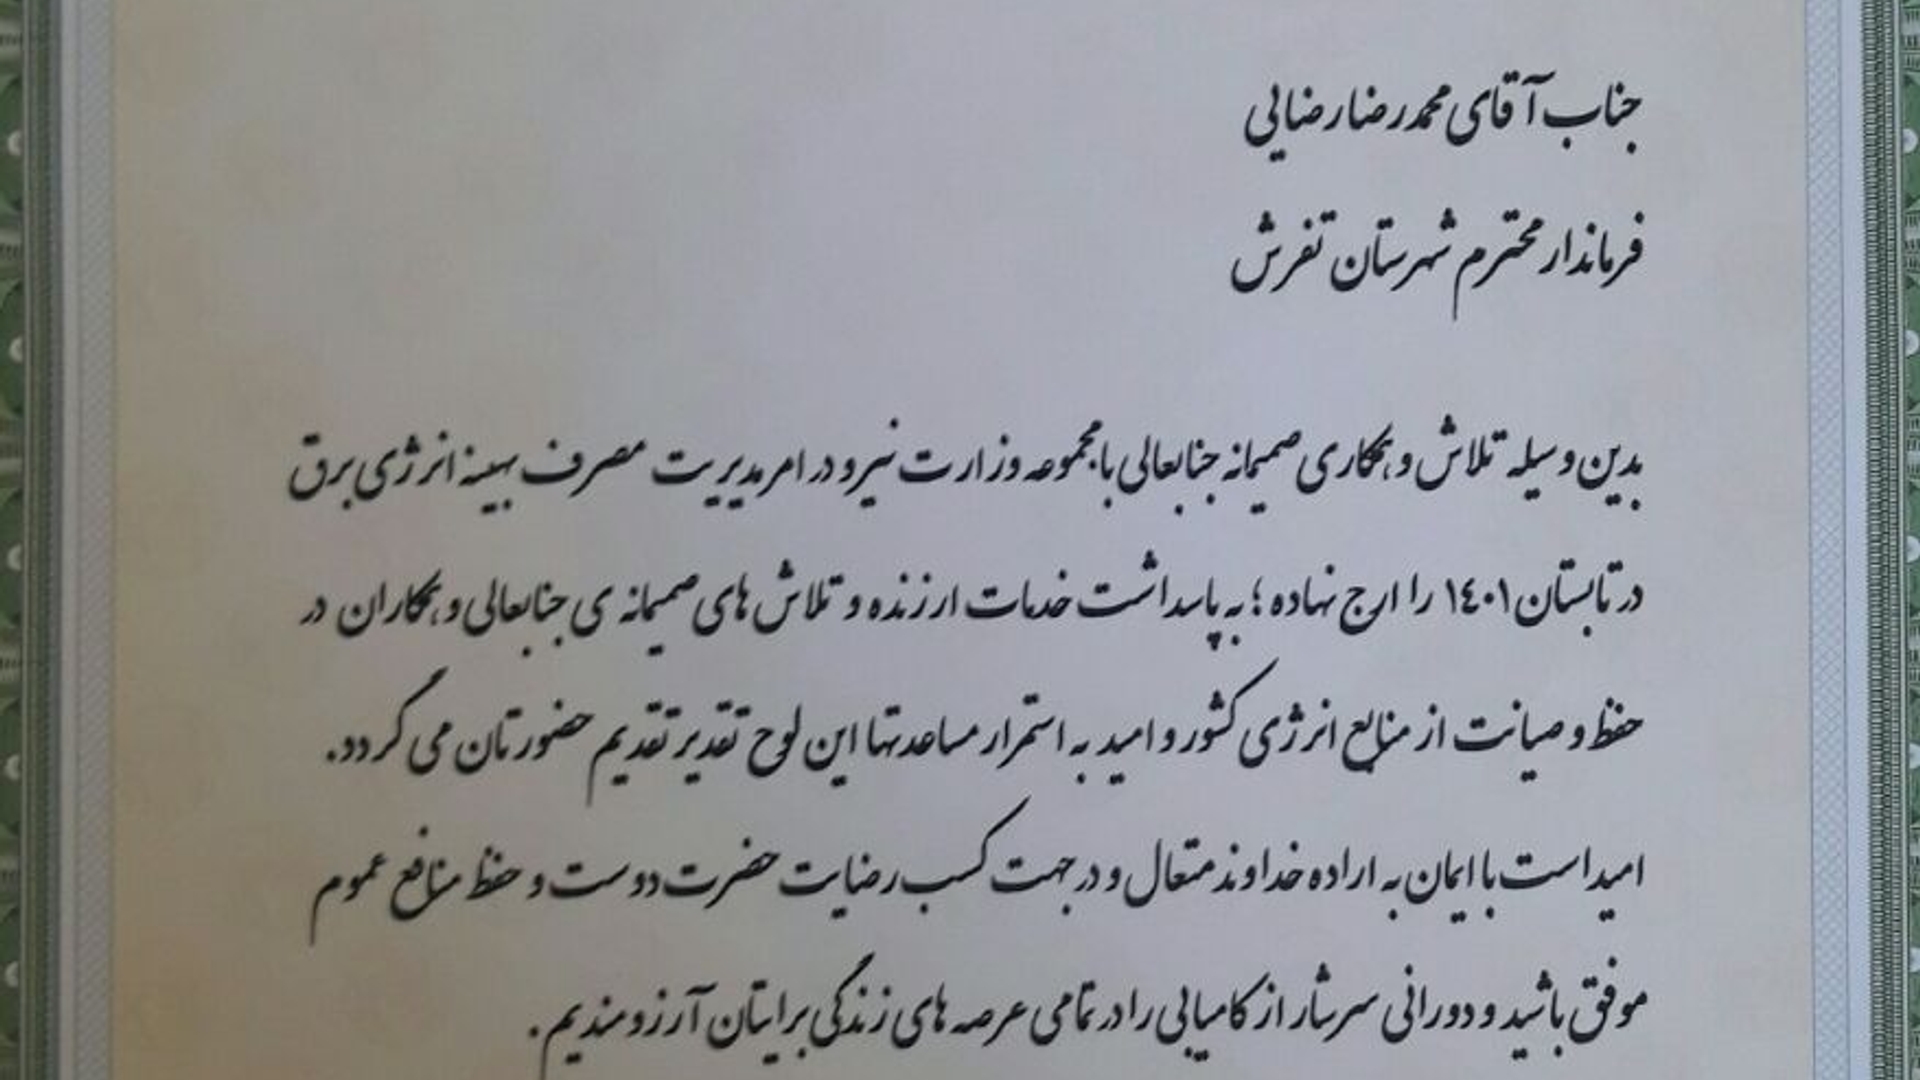 جناب آقای محمدرضا رضایی
فرماندار محترم شهرستان تفرش
بدین وسیله تلاش و همکاری صمیمانه جنابعالی با مجموعه وزارت نیرو در امر مدیریت مصرف بهینه انرژی برق
در تابستان ۱٤۰۱ را ارج نهاده ؛ به پاسداشت خدمات ارزنده و تلاش های صمیمانه ی جنابعالی و همکاران در
حفظ و صیانت از منابع انرژی کشور و امید به استمرار مساعدتها این لوح تقدیر تقدیم حضورتان می گردد.
امید است با ایمان به اراده خداوند متعال و در جهت کسب رضایت حضرت دوست و حفظ منافع عموم
موفق باشید و دورانی سرشار از کامیابی را در تمامی عرصه های زندگی برایتان آرزومندیم .